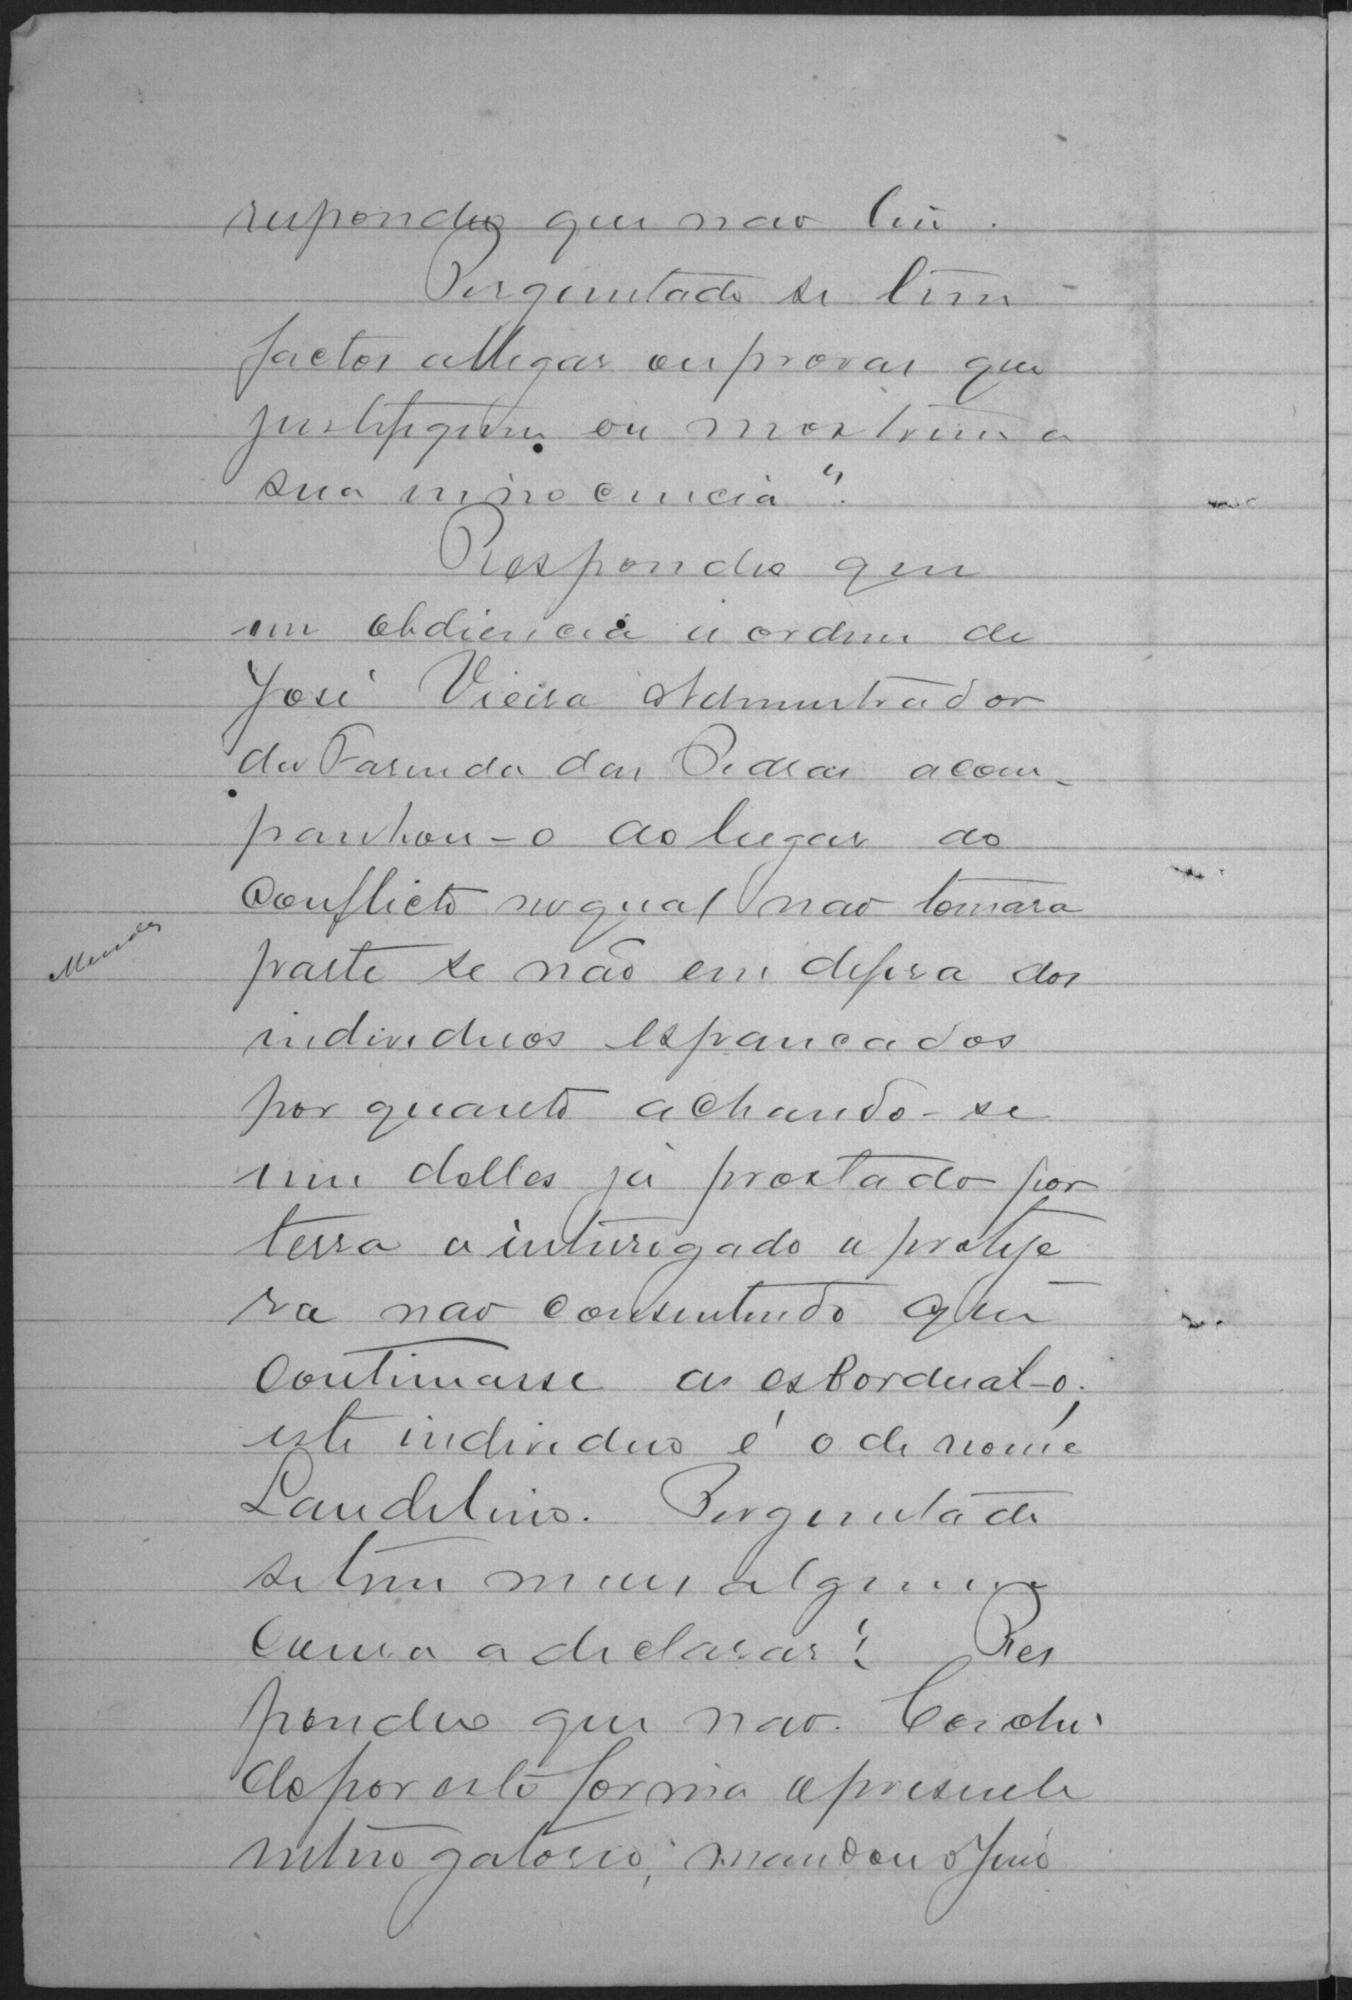 respondeo que nao tem.
Perguntado se tem
factos allegar ou provar que
justifiquem ou mostrem a
sua innocencia?
Respondeo que
em obdiencia a ordem de
José Vieira Administrador
da Fasenda das Pedras acom-
panhou-o ao lugar do
conflicto no qual nao tomára
parte se não em defesa dos
individuos espancados
por quanto achando-se
um delles já prostado por
terra o interrogado o proteje
ra nao consentindo que
continuasse a esbordual-o.
este individuo é o de nome
Laudelino. Perguntado
se tem mais alguma
cousa a declarar? Res
pondeo que nao. Conclui
do por esta forma o presente
interogatorio, mandou o Juiz
Mendes